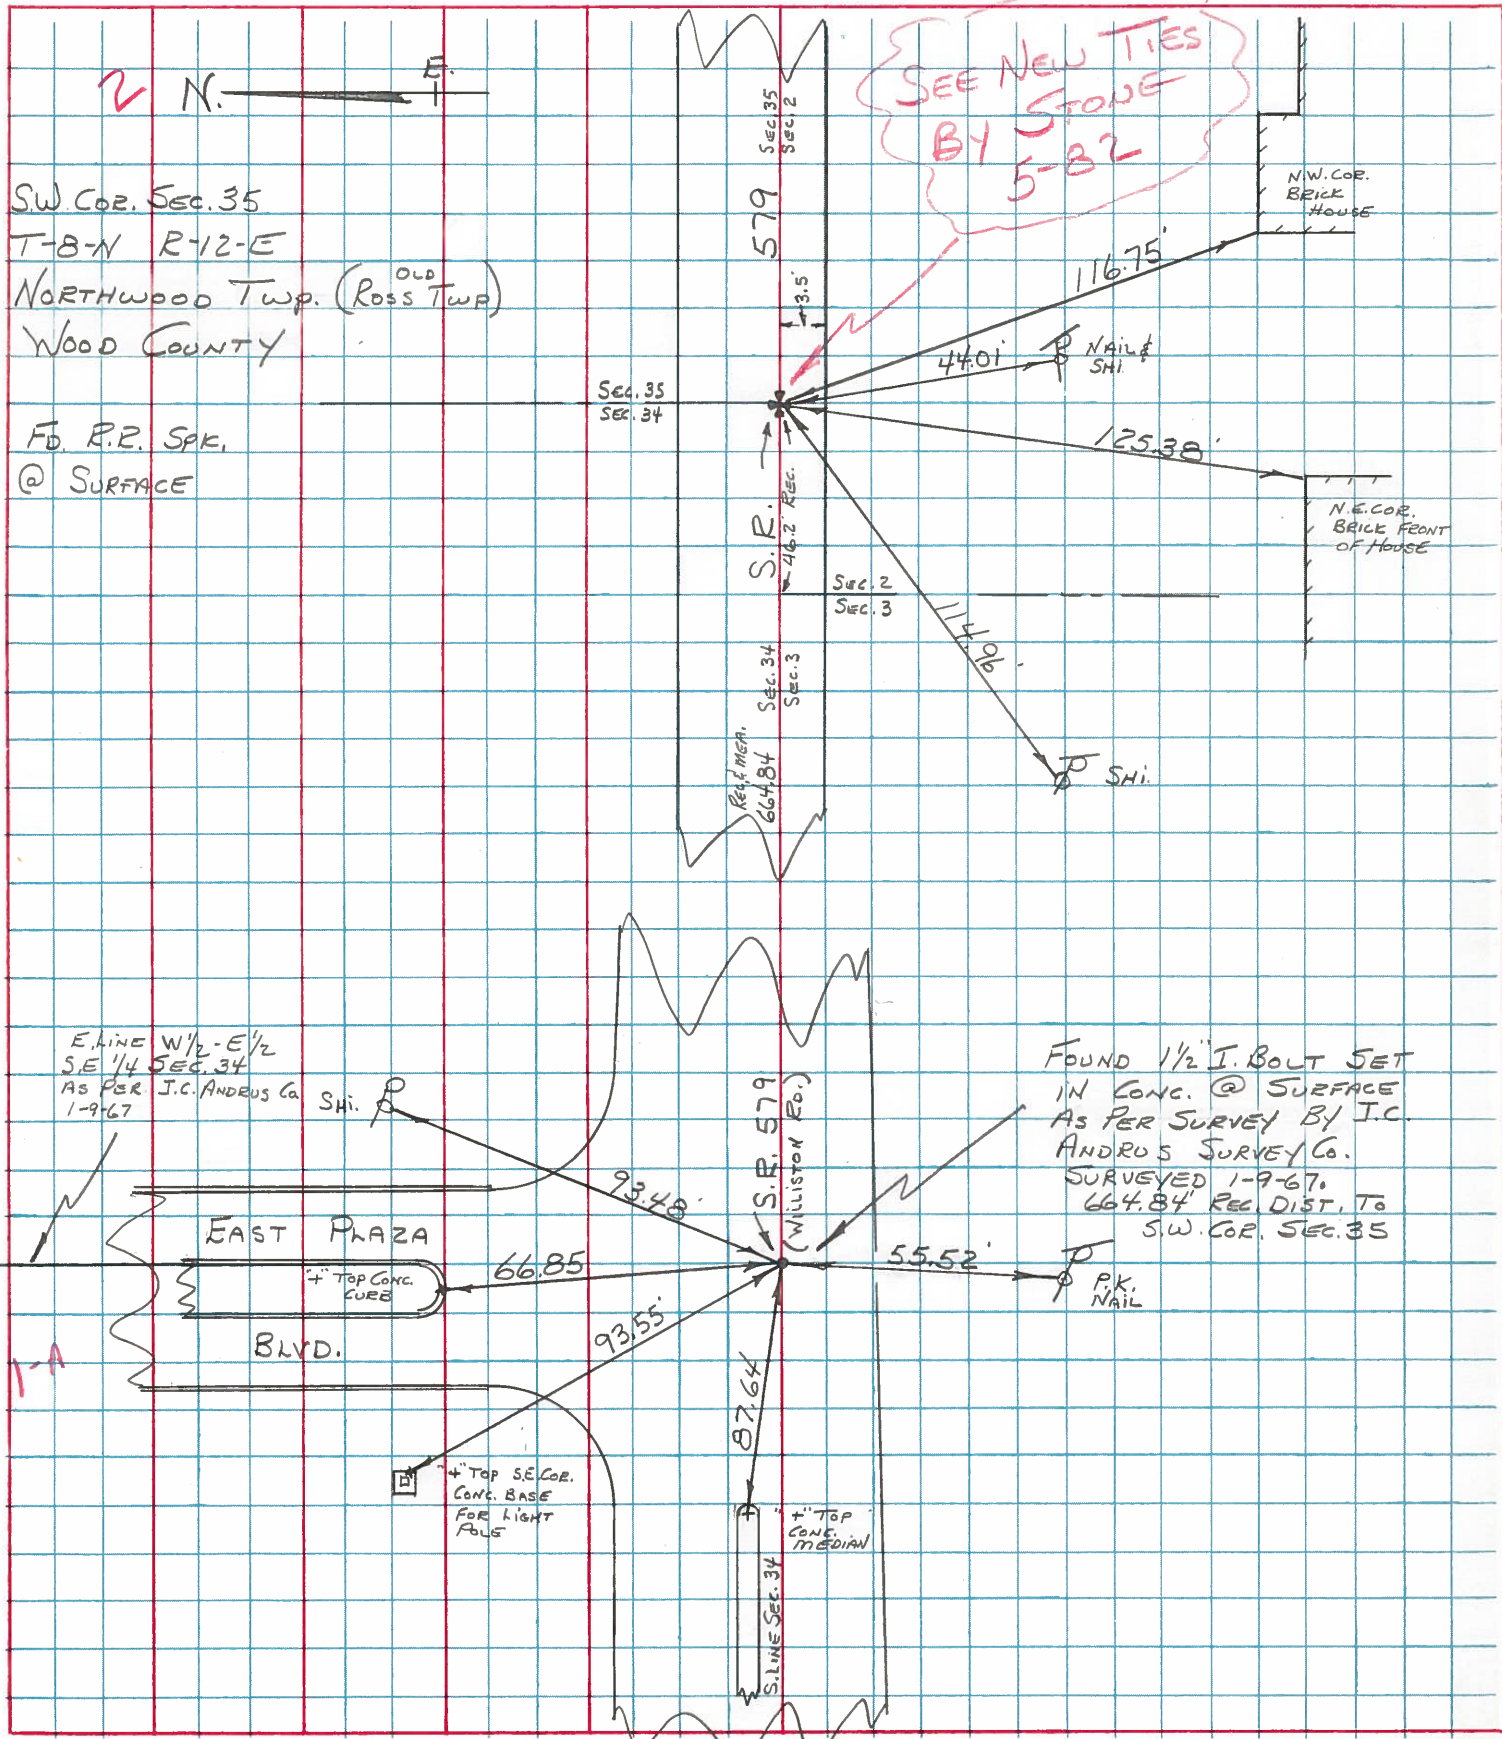 2
N.
E.
SEE NEW TIES
BY STONE
5-82
S.W. COR. SEC. 35
T-8-N R-12-E
OLD
NORTHWOOD TWP. (ROSS TWP)
WOOD COUNTY
FD. R.R. SPK.
@ SURFACE
SEC. 35
SEC. 2
579
3.5'
N.W. COR.
BRICK
HOUSE
116.75'
44.01'
NAIL &
SHI.
SEC. 35
SEC. 34
125.38'
N.E. COR.
BRICK FRONT
OF HOUSE
S.R.
46.2' REC.
SEC. 2
SEC. 3
114.96'
SHI.
SEC. 34
SEC. 3
REC. & MEA.
664.84
E. LINE W 1/2 - E 1/2
S.E 1/4 SEC. 34
AS PER J.C. ANDRUS CO.
1-9-67
SHI.
93.48'
S.R. 579
(WILLISTON RD.)
FOUND 1 1/2" I. BOLT SET
IN CONC. @ SURFACE
AS PER SURVEY BY J.C.
ANDRUS SURVEY CO.
SURVEYED 1-9-67.
664.84' REC. DIST. TO
S.W. COR. SEC. 35
EAST PLAZA
"+" TOP CONC.
CURB
BLVD.
66.85
55.52'
P.K.
NAIL
93.55'
87.64
1-A
"+" TOP S.E. COR.
CONC. BASE
FOR LIGHT
POLE
"+" TOP
CONC.
MEDIAN
S. LINE SEC. 34